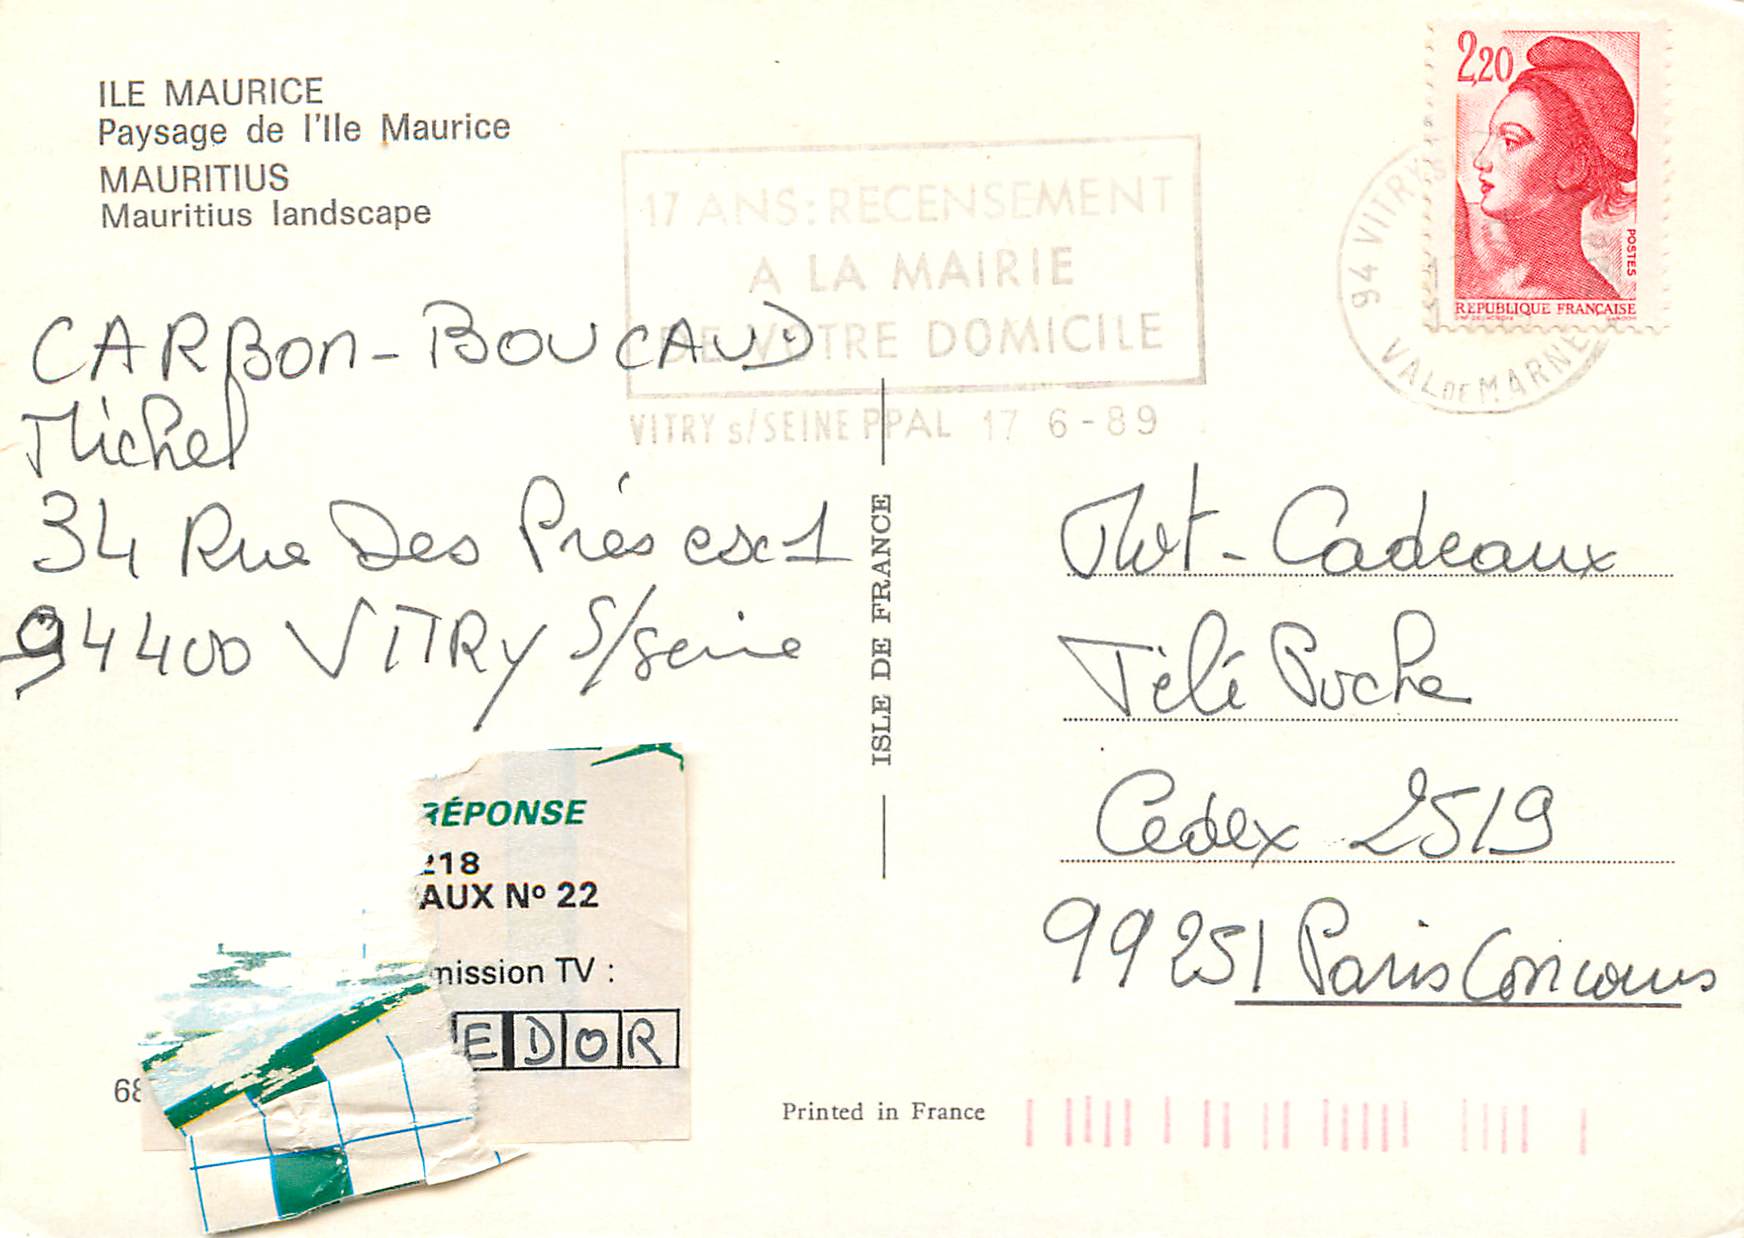 ILE MAURICE
Paysage de l'Ile Maurice
MAURITIUS
Mauritius landscape
17 ANS: RECENSEMENT
A LA MAIRIE
DE VOTRE DOMICILE
VITRY s/SEINE PPAL 17 6-89
2,20
POSTES
REPUBLIQUE FRANÇAISE
94 VITRY
VAL DE MARNE
CARBON-BOUCAUD
Michel
34 Rue Des Prés esc 1
94400 VITRY S/Seine
ISLE DE FRANCE
Mot-Cadeaux
Télé Poche
Cedex 2519
99251 Paris Concours
RÉPONSE
218
AUX Nº 22
mission TV :
EDOR
68
Printed in France